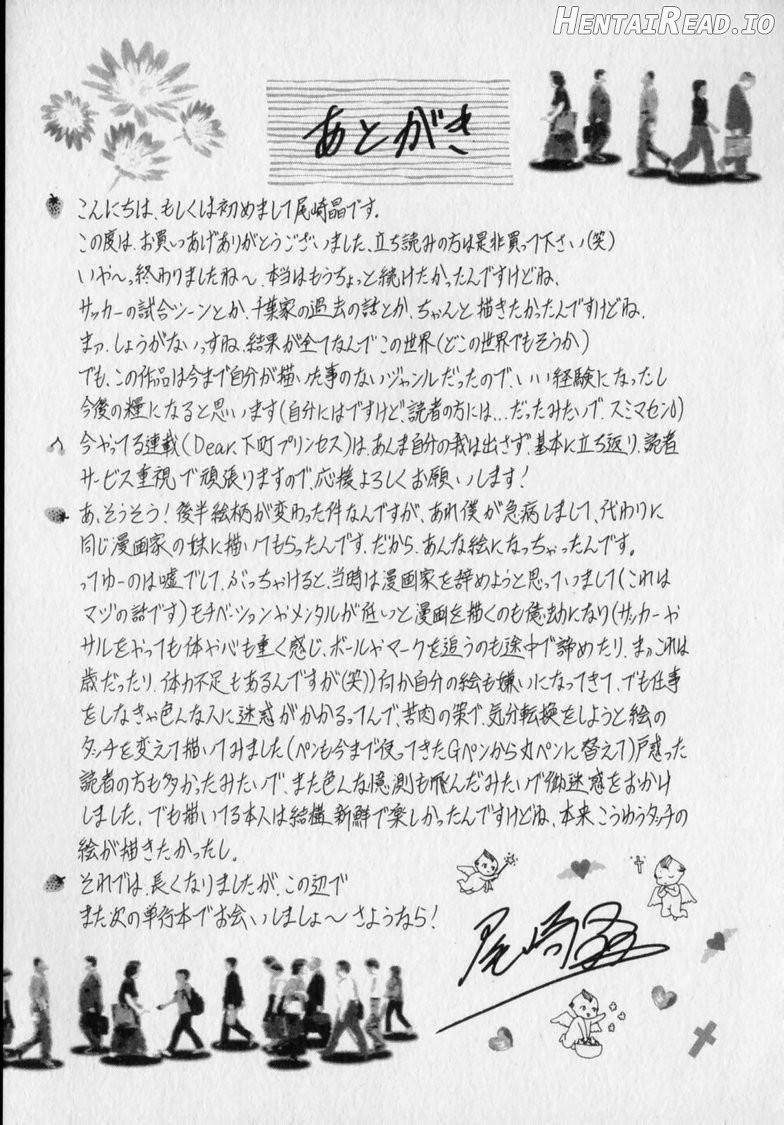 HENTAIREAD.IO
あとがき
こんにちは、もしくは初めまして尾崎晶です。
この度は、お買いあげありがとうございました、立ち読みの方は是非買って下さい(笑)
いや〜っ終わりましたね〜、本当はもうちょっと続けたかったんですけどね、
サッカーの試合シーンとか、千葉家の過去の話とか、ちゃんと描きたかったんですけどね、
まァ、しょうがないっすね、結果が全てなんでこの世界(どこの世界でもそうか)
でも、この作品は今まで自分が描いた事のないジャンルだったので、いい経験になったし
今後の糧になると思います(自分にはですけど、読者の方には...だったみたいで、スミマセン)
今やってる連載(Dear.下町プリンセス)は、あんま自分の我は出さず、基本に立ち返り、読者
サービス重視で頑張りますので、応援よろしくお願いします!
あ、そうそう!後半絵柄が変わった件なんですが、あれ僕が急病しまして、代わりに
同じ漫画家の妹に描いてもらったんです、だから、あんな絵になっちゃったんです。
ってゆーのは嘘でして、ぶっちゃけると、当時は漫画家を辞めようと思っていまして(これは
マジの話です)モチベーションやメンタルが低いと漫画を描くのも億劫になり(サッカーや
サルをやっても体や心も重く感じ、ボールやマークを追うのも途中で諦めたり、まァこれは
歳だったり、体力不足もあるんですが(笑))何か自分の絵も嫌いになってきて、でも仕事
をしなきゃ色んな人に迷惑がかかるってんで、苦肉の策で、気分転換をしようと絵の
タッチを変えて描いてみました(ペンも今まで使ってきたGペンから丸ペンに替えて)戸惑った
読者の方も多かったみたいで、また色んな憶測も飛んだみたいで御迷惑をおかけ
しました、でも描いてる本人は結構、新鮮で楽しかったんですけどね、本来こうゆうタッチの
絵が描きたかったし。
それでは、長くなりましたが、この辺で
また次の単行本でお会いしましょ〜さようなら!
尾崎晶